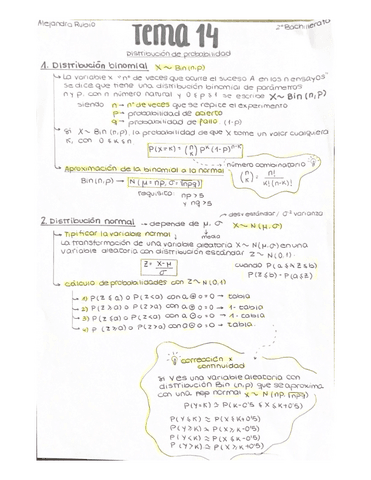 Alejandra Rubio
2º Bachillerato
TEMA 14
Distribución de probabilidad
1. Distribución binomial X ~ Bin(n, p)
La variable x = "nº de veces que ocurre el suceso A en los n ensayos"
se dice que tiene una distribución binomial de parámetros
n y p, con n número natural y 0 ≤ p ≤ 1 se escribe X ~ Bin(n, p)
siendo n → nº de veces que se repite el experimento
p → probabilidad de acierto
q → probabilidad de fallo (1-p)
Si X ~ Bin(n, p), la probabilidad de que X tome un valor cualquiera
K, con 0 ≤ K ≤ n
P(X=K) = (n K) p^K (1-p)^n-K
número combinatorio
(n K) = n! / K!(n-K)!
Aproximación de la binomial a la normal
Bin(n, p) → N(μ = np, σ = √npq)
requisito: np > 5
y nq > 5
2. Distribución normal → depende de μ, σ X ~ N(μ, σ)
desv. estándar / σ² varianza
media
Tipificar la variable normal
La transformación de una variable aleatoria X ~ N(μ, σ) en una
variable aleatoria con distribución estándar Z ~ N(0, 1)
Z = X - μ / σ
cuando P(a ≤ Z ≤ b)
P(Z ≤ b) - P(Z ≤ a)
Cálculo de probabilidades con Z ~ N(0, 1)
1) P(Z ≤ a) o P(Z < a) con a ⊕ o = 0 → tabla
2) P(Z ≥ a) o P(Z > a) con a ⊕ o = 0 → 1 - tabla
corrección x
continuidad
Si Y es una variable aleatoria con
distribución Bin(n, p) que se aproxima
con una normal X ~ N(np, √npq)
P(Y=K) ≃ P(K-0'5 ≤ X ≤ K+0'5)
P(Y ≤ K) ≃ P(X ≤ K+0'5)
P(Y ≥ K) ≃ P(X ≥ K-0'5)
P(Y < K) ≃ P(X ≤ K-0'5)
P(Y > K) ≃ P(X ≥ K+0'5)